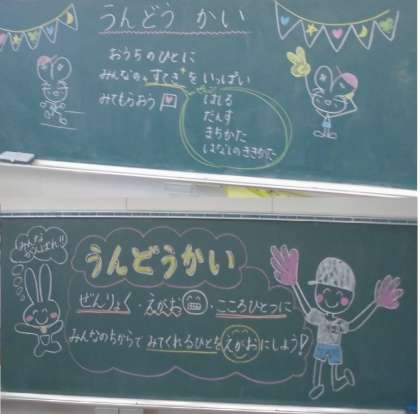 うんどう かい
おうちのひとに
みんなの"すてき"を いっぱい
みてもらおう
はしる
だんす
まちかた
はなしのききかた
みんな
がんばれ!!
うんどうかい
ぜんりょく・えがお・こころひとつに
みんなのちからで みてくれるひとをえがおにしよう!